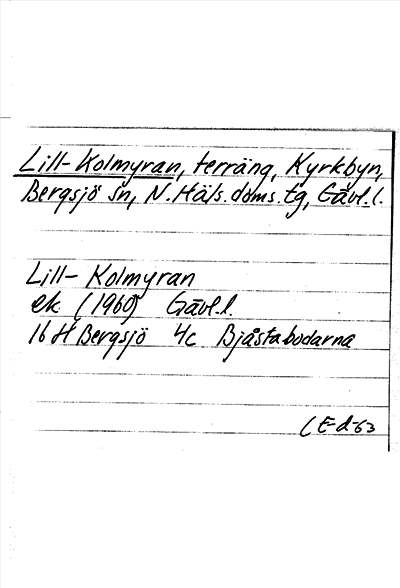 Lill-Kolmyran, terräng, Kyrkbyn,
Bergsjö sn, N. Häls. doms. tg, Gävl. l.
Lill-Kolmyran
ek. (1960) Gävl. l.
16 H Bergsjö 4c Bjåstabodarna
E-d-63